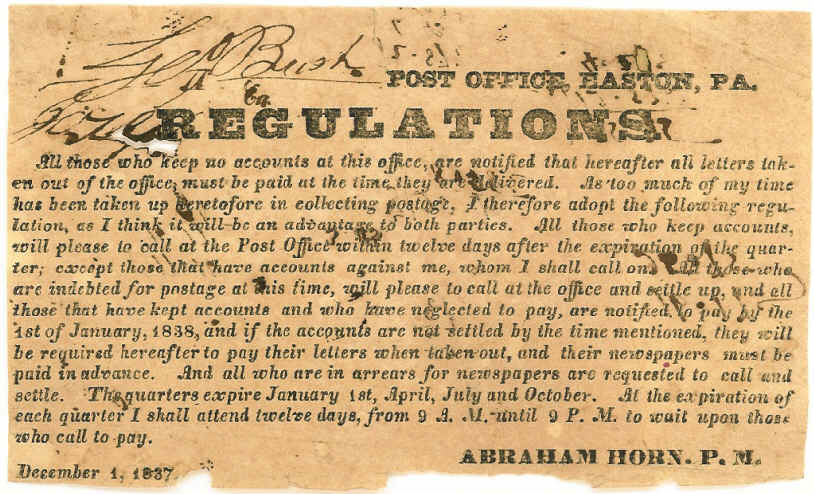 Geo Bush
POST OFFICE, EASTON, PA.
REGULATIONS.
All those who keep no accounts at this office, are notified that hereafter all letters tak-
en out of the office, must be paid at the time they are delivered. As too much of my time
has been taken up heretofore in collecting postage, I therefore adopt the following regu-
lation, as I think it will be an advantage to both parties. All those who keep accounts,
will please to call at the Post Office within twelve days after the expiration of the quar-
ter; except those that have accounts against me, whom I shall call on. All those who
are indebted for postage at this time, will please to call at the office and settle up, and all
those that have kept accounts and who have neglected to pay, are notified to pay by the
1st of January, 1838, and if the accounts are not settled by the time mentioned, they will
be required hereafter to pay their letters when taken out, and their newspapers must be
paid in advance. And all who are in arrears for newspapers are requested to call and
settle. The quarters expire January 1st, April, July and October. At the expiration of
each quarter I shall attend twelve days, from 9 A. M. until 9 P. M. to wait upon those
who call to pay.
ABRAHAM HORN. P. M.
December 1, 1837.